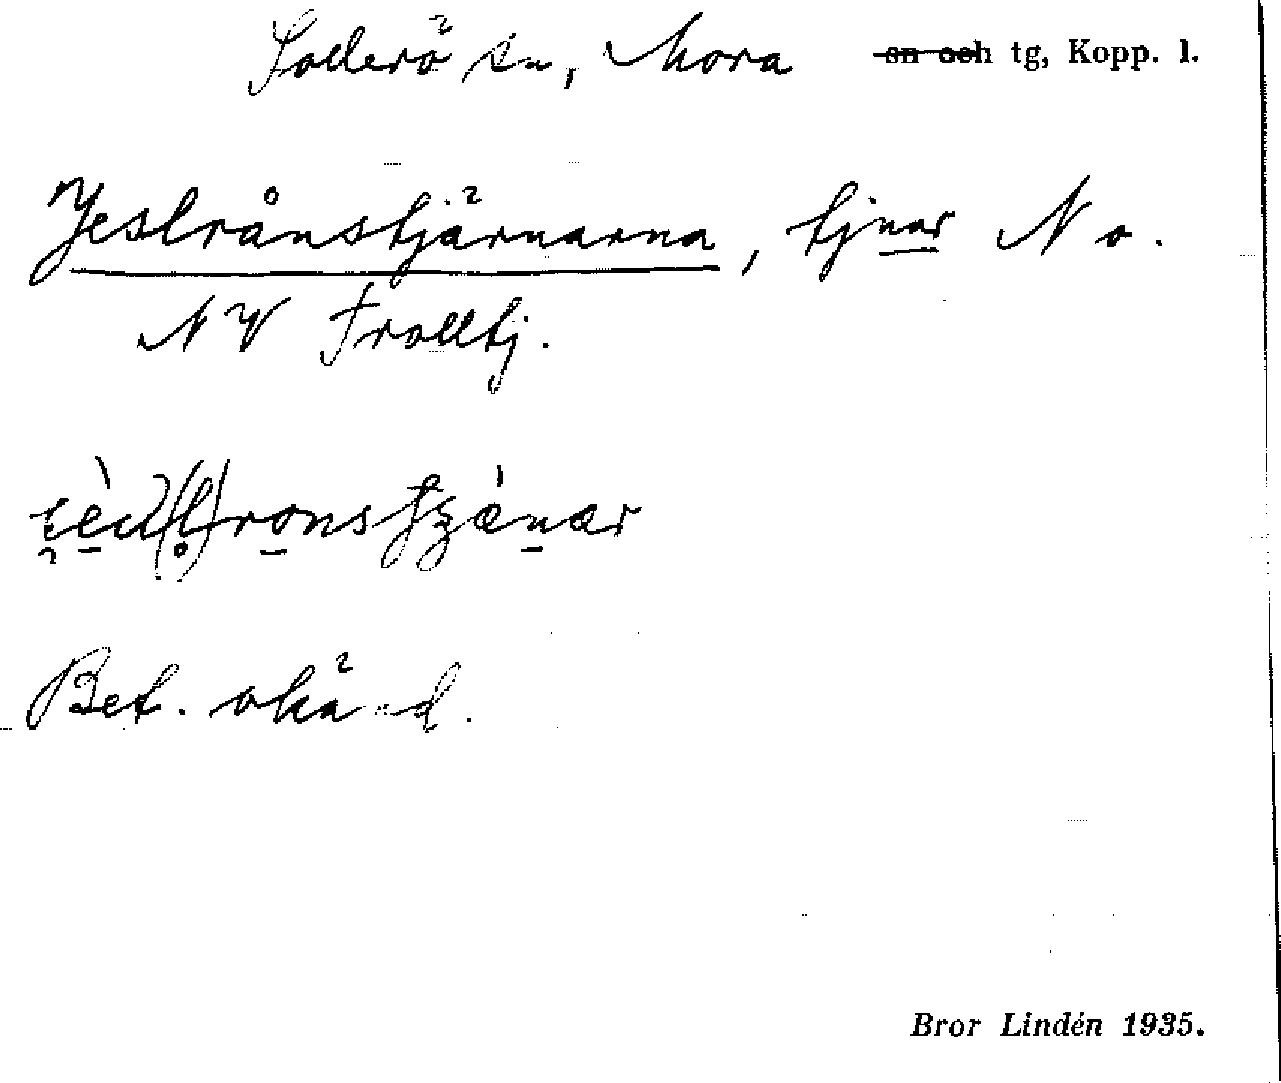 Sollerö sn, Mora sn och tg, Kopp. l.
Jeslrånstjärnarna, tjnar N o.
NV Trolltj.
Bet. okänd.
Bror Lindén 1935.